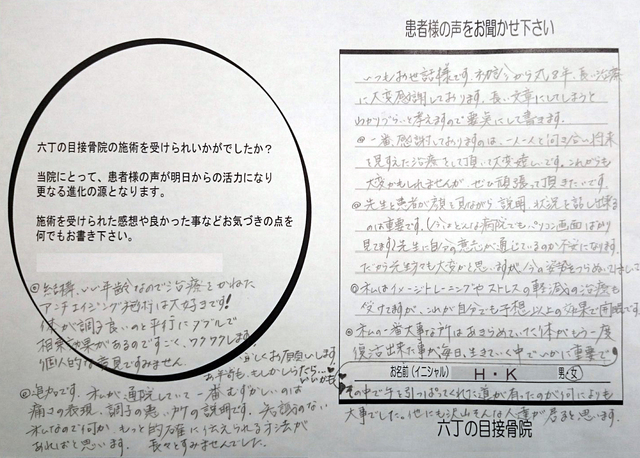 患者様の声をお聞かせ下さい
いつもお世話様です。初診から丸8年、長い治療
に大変感謝しております。長い文章にしてしまうと
わかりづらいと考えますので要点にして書きます。
◎一番、感謝しておりますのは、一人一人と向き合い将来
を見すえた治療をして頂い大変嬉しいです。これからも
大変かもしれませんが、ぜひ頑張って頂きたいです。
◎先生と患者が顔を見ながら説明、状況を話し出来る
のは重要です。(今はとんな病院でもパソコン画面ばかり
見てます)先生に自分の意志が通じているのか不安になります。
だから先生方も大変かと思いますが、今の姿勢をつらぬいて下さい
◎私はイメージトレーニングやストレスの軽減の治療も
受けてますが、これが自分でも予想以上の効果で
◎私の一番大事な所は、あきらめていた体がもう一度
復活出来た事が毎日、生きていく中でいかに重要で
お名前(イニシャル) H・K 男・女
その中で手を引っぱってくれた道が有ったのが何によりも
大事でした。他にも沢山そんな人達が居ると思います。
六丁の目接骨院
六丁の目接骨院の施術を受けられいかがでしたか?
当院にとって、患者様の声が明日からの活力になり
更なる進化の源となります。
施術を受けられた感想や良かった事などお気づきの点を
何でもお書き下さい。
◎結構、いい年齢なので治療とかねた
アンチエイジング施術は大好きです!
体が調子良いのと平行にダブルで
相乗効果があるのですごく、ワクワクします。
個人的な意見ですみません。
宜しくお願いします
お年寄も、もしかしらたら…
いいかも
◎追加です。私が通院していて一番むずかしいのは
痛さの表現、調子の悪いカ所の説明です。
私なので何か、もっと的確に伝えられる方法が
あればと思います。長々とすみませんでした。